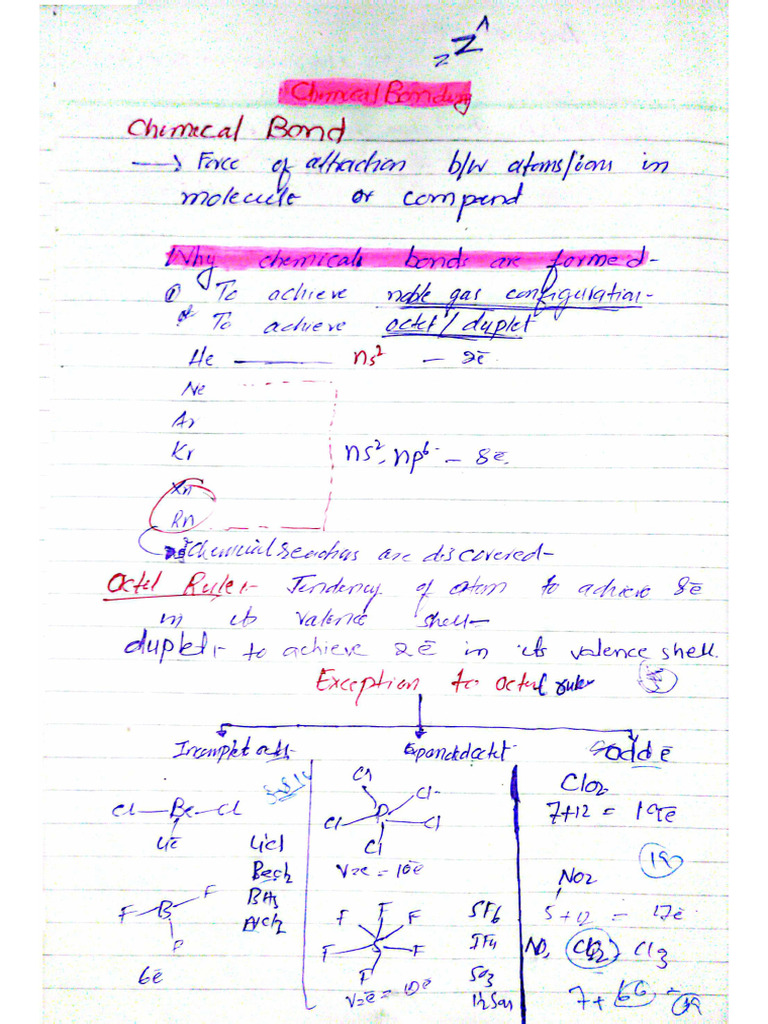 zZ^
Chemical Bonding
Chemical Bond
→ Force of attraction b/w atoms/ions in
molecule or compond
Why chemicals bonds are formed-
① To achieve noble gas configuration-
To achieve octet/duplet
He ns² - 2ē
Ne
Ar
Kr ns², np⁶ - 8ē
Xn
Rn
chemical reactions are discovered-
Octel Rule:- Tendency of atom to achieve 8ē
in its valence shell-
duplet:- to achieve 2ē in its valence shell.
Exception to octel rule
Incomplet octet Expanded octet odd ē
Cl-Be-Cl
4ē
LiCl
Becl2
BH3
AlCl3
F B F
F
6ē
Cl Cl
Cl P Cl
Cl
Vze = 10ē
F F F
F S F
F
SF6
IF4
SO3
Clo2
7+12 = 19ē
19
NO2
5+12 = 17ē
NO, Cl3